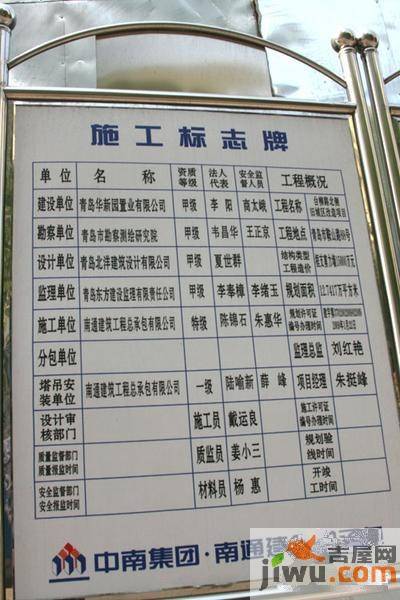 施工标志牌
单位 名称 资质等级 法人代表 安全监督人员 工程概况
建设单位 青岛华新园置业有限公司 甲级 李阳 商太峨 工程名称 台柳路北侧旧城区改造项目
勘察单位 青岛市勘察测绘研究院 甲级 韦昌华 王正京 工程地点 青岛市鞍山路
设计单位 青岛北洋建筑设计有限公司 甲级 夏世群 结构类型工程造价
监理单位 青岛东方建设监理有限责任公司 甲级 李奉樟 李绪玉 规划面积 12.7417万平方米
施工单位 南通建筑工程总承包有限公司 特级 陈锦石 朱惠华 规划许可证编号办理时间
分包单位 监理总监 刘红艳
塔吊安装单位 南通建筑工程总承包有限公司 一级 陆喻新 薛峰 项目经理 朱挺峰
设计审核部门 施工员 戴远良 施工许可证编号办理时间
质量监督部门质量报监时间 质监员 姜小三 规划验线时间
安全监督部门安全报监时间 材料员 杨惠 开竣工时间
中南集团·南通建
吉屋网
jiwu.com